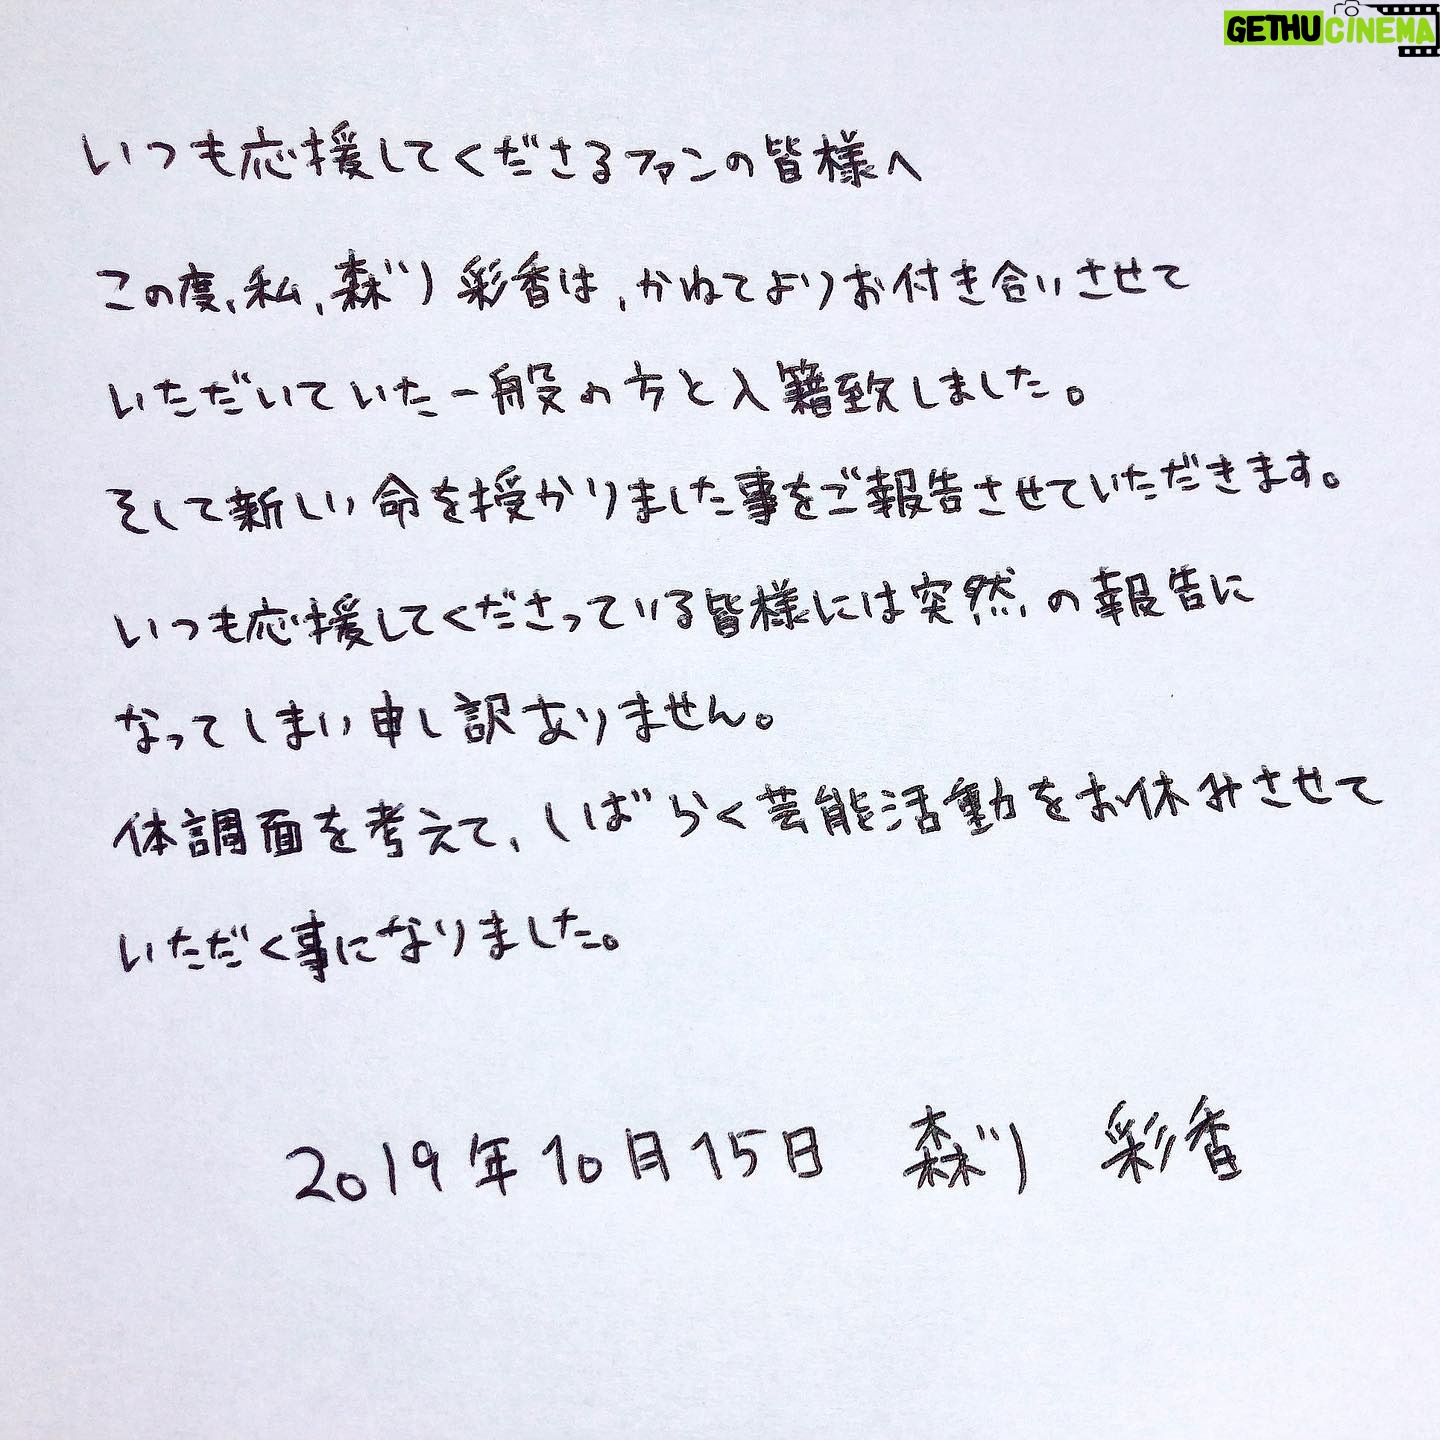 GETHUCINEMA
いつも応援してくださるファンの皆様へ
この度、私、森ガリ彩香は、かねてよりお付き合いさせて
いただいていた一般の方と入籍致しました。
そして新しい命を授かりました事をご報告させていただきます。
いつも応援してくださっている皆様には突然の報告に
なってしまい申し訳ありません。
体調面を考えて、しばらく芸能活動をお休みさせて
いただく事になりました。
2019年10月15日 森ガリ 彩香